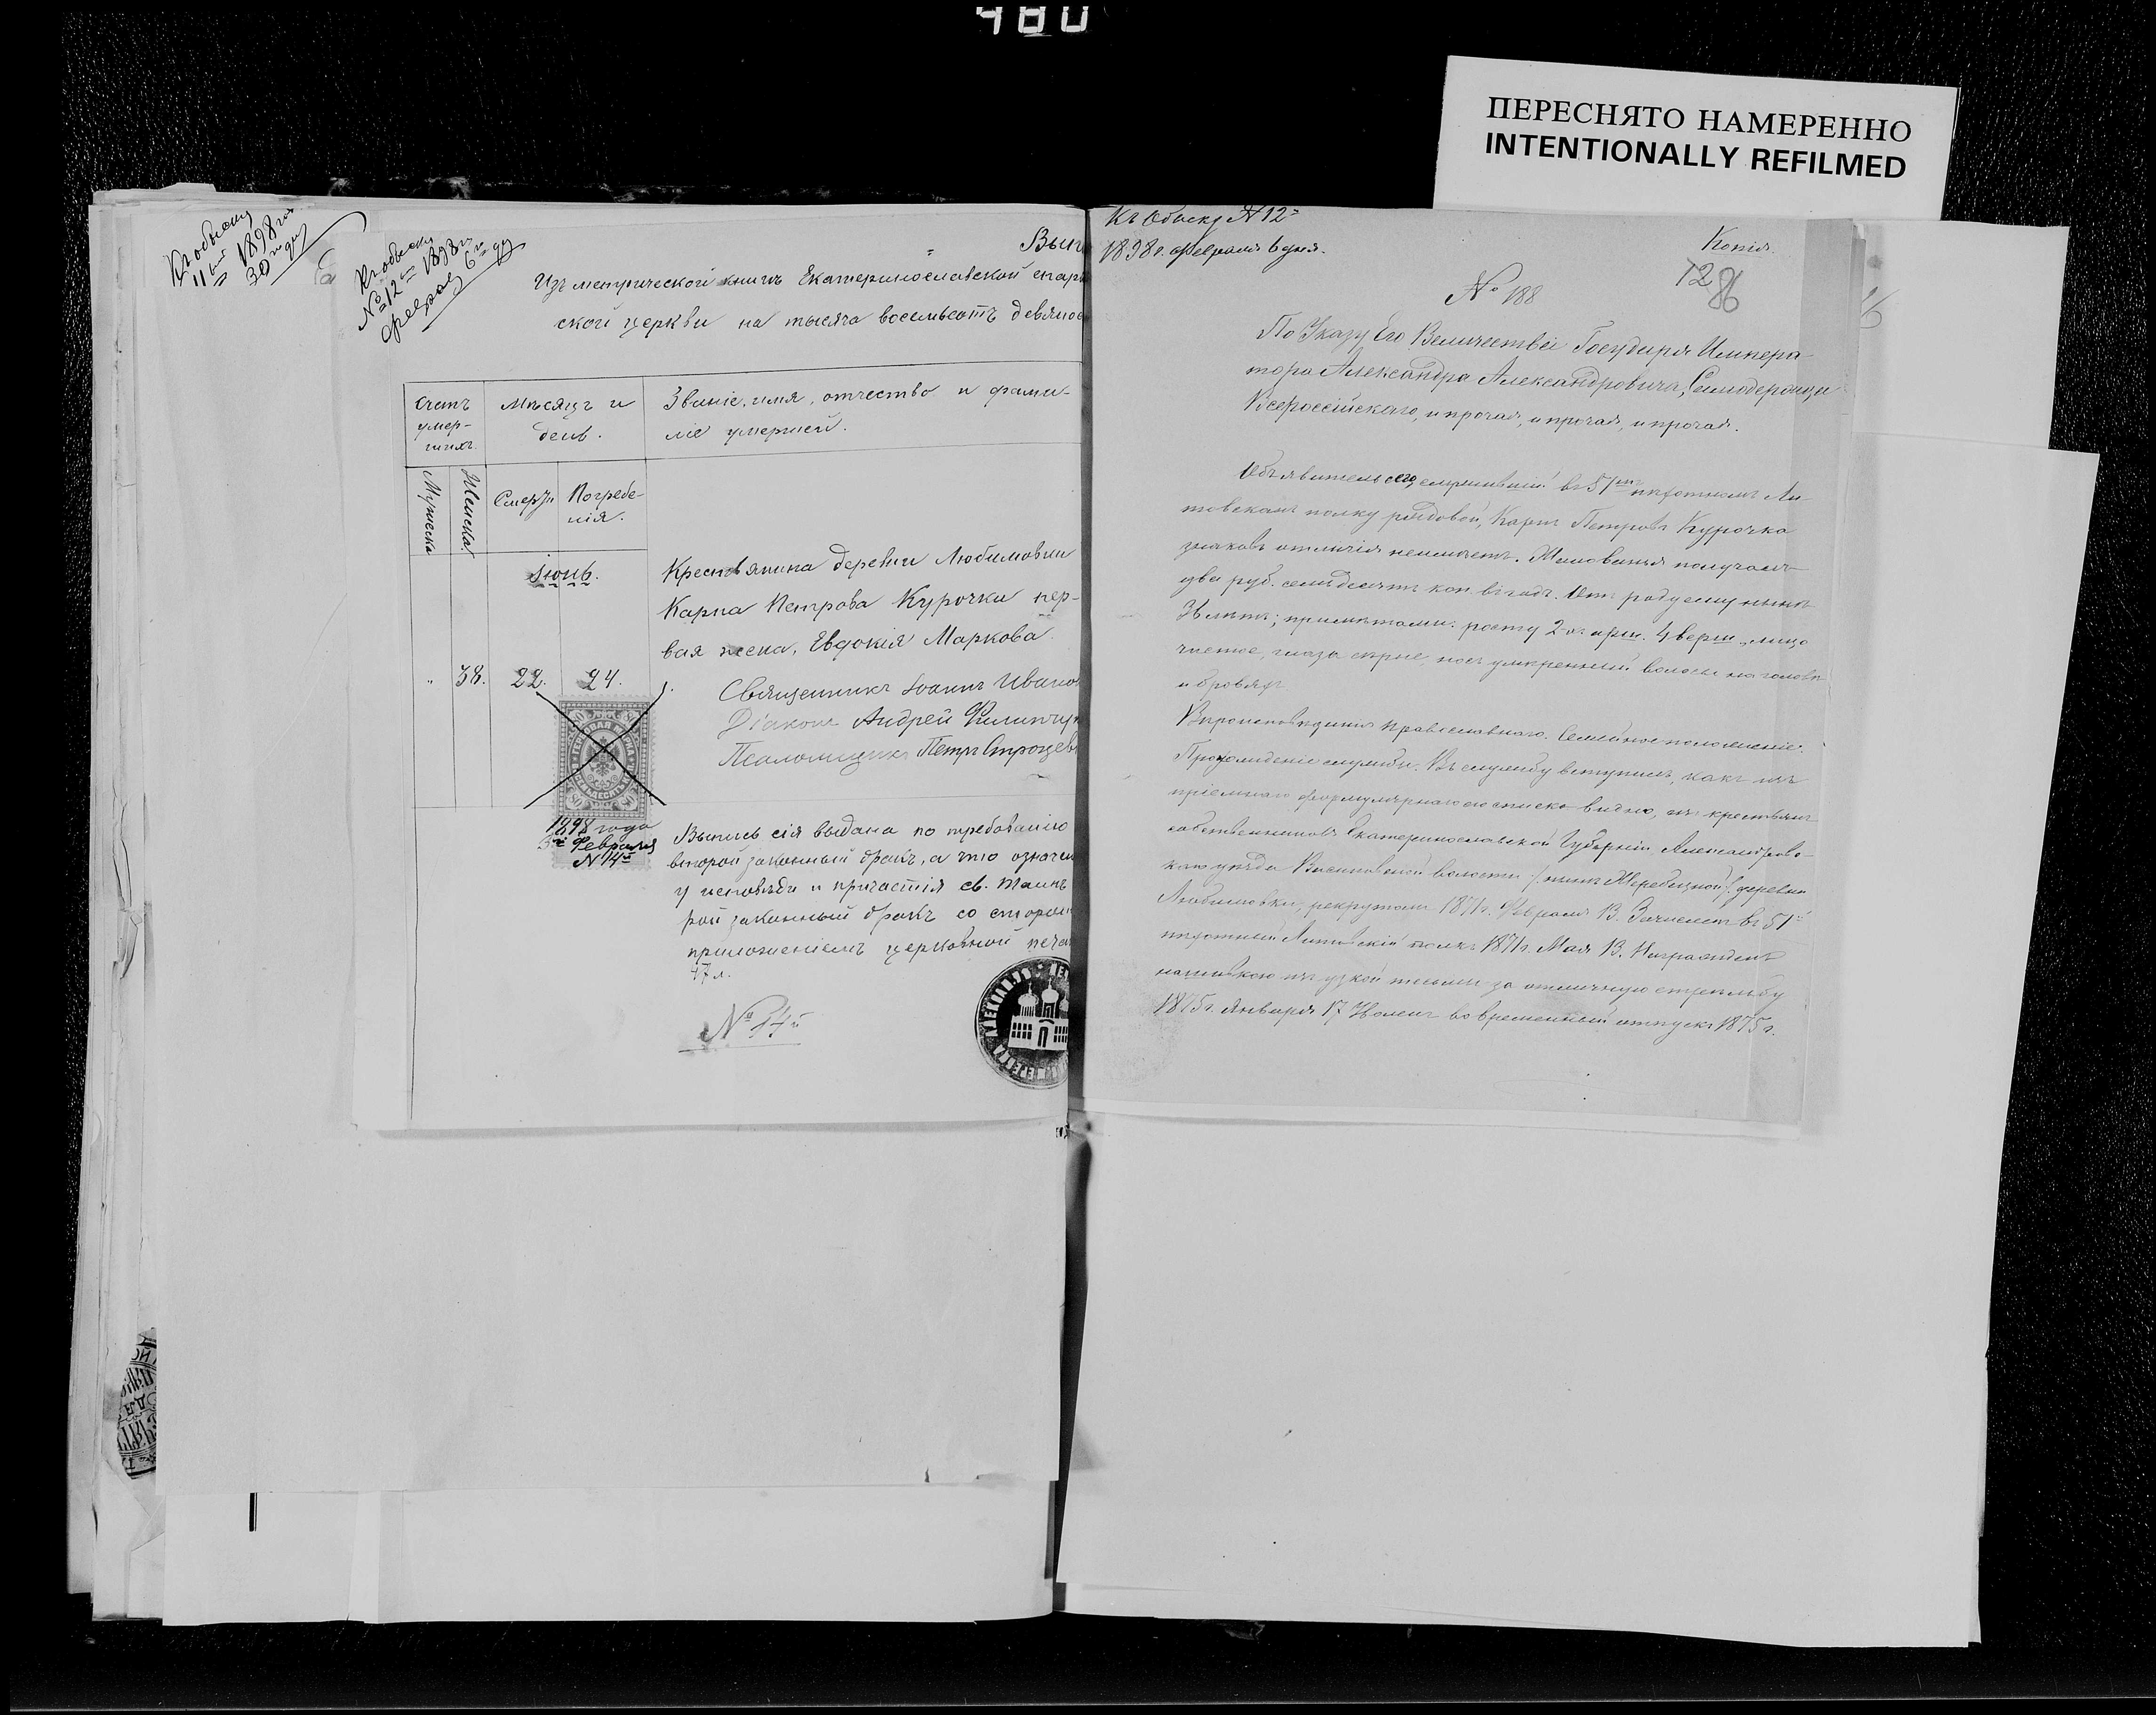 480
ПЕРЕСНЯТО НАМЕРЕННО
INTENTIONALLY REFILMED
Къ обыску
11ый 1898 год
30го дня
Къ обыску
№ 12ый 1898 г.
феврал 6го дня
Вып
Изъ метрической книги Екатеринославской епар
ской церкви на тысяча восемьсотъ девяно
Счетъ умер-
шихъ.
Мѣсяцъ и
день.
Званіе, имя, отчество и фами-
ліе умершей.
Мужеска
Женска
Смерти
Погребе-
нія.
Іюнь.
Крестьянина деревни Любимовки
Карпа Петрова Курочки пер-
вая жена, Евдокія Маркова.
„ 38. 22. 24.
Священникъ Іоаннъ Иванов
Діаконъ Андрей
Псаломщикъ Петръ
1898 года
5го Февраля
N 14й
Выпись сія выдана по требованію
второй законный бракъ, а что означен
у исповѣди и причастія св. Таинъ
рой законный бракъ со сторон
приложеніемъ церковной печа
47 л.
№ 14й
Къ Обыску № 12й
1898 г. февраля 6 дня.
Копія.
128
86
№ 188
По Указу Его Величества Государя Импера-
тора Александра Александровича, Самодержца
Всероссійскаго, и прочая, и прочая, и прочая.
Объявитель сего, служившій въ 51мъ пѣхотномъ Ли-
товскомъ полку рядовой, Карпъ Петровъ Курочка
знаковъ отличія неимѣетъ. Жалованья получалъ
два руб. семьдесятъ коп. въ годъ. Отъ роду ему нынѣ
лѣтъ; примѣтами: росту 2хъ арш. 4 верш., лицо
чистое, глаза сѣрые, носъ умѣренный волосы на головѣ
и бровяхъ
Вѣроисповѣданія Православнаго. Семейное положеніе.
Прохожденіе службы. Въ службу вступилъ, какъ изъ
пріемнаго формулярнаго его списка видно, изъ крестьянъ
собственниковъ Екатеринославской Губерніи Александровс-
каго уѣзда волости (нынѣ Жеребецкой) деревни
Любимовки, рекрутомъ 1871 г. Февраля 13. Зачисленъ въ 51й
пѣхотный Литовскій полкъ 1871 г. Мая 13. Награжденъ
нашивкою изъ узкой тесьмы за отличную стрѣльбу
1875 г. Января 17 Уволенъ во временный отпускъ 1875 г.